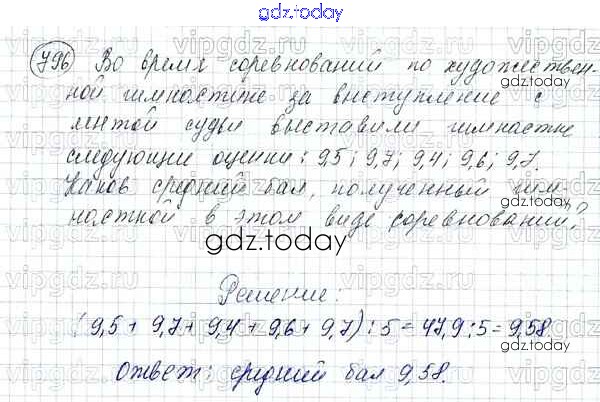 gdz.today
796 Во время соревнований по художествен-
ной гимнастике за выступление с
gdz.today
лентой судьи выставили гимнастке
следующие оценки: 9,5; 9,7; 9,4; 9,6; 9,7.
Каков средний бал, полученный гим-
gdz.today
насткой в этом виде соревнований?
gdz.today
Решение:
(9,5 + 9,7 + 9,4 + 9,6 + 9,7) : 5 = 47,9 : 5 = 9,58.
gdz.today
Ответ: средний бал 9,58.